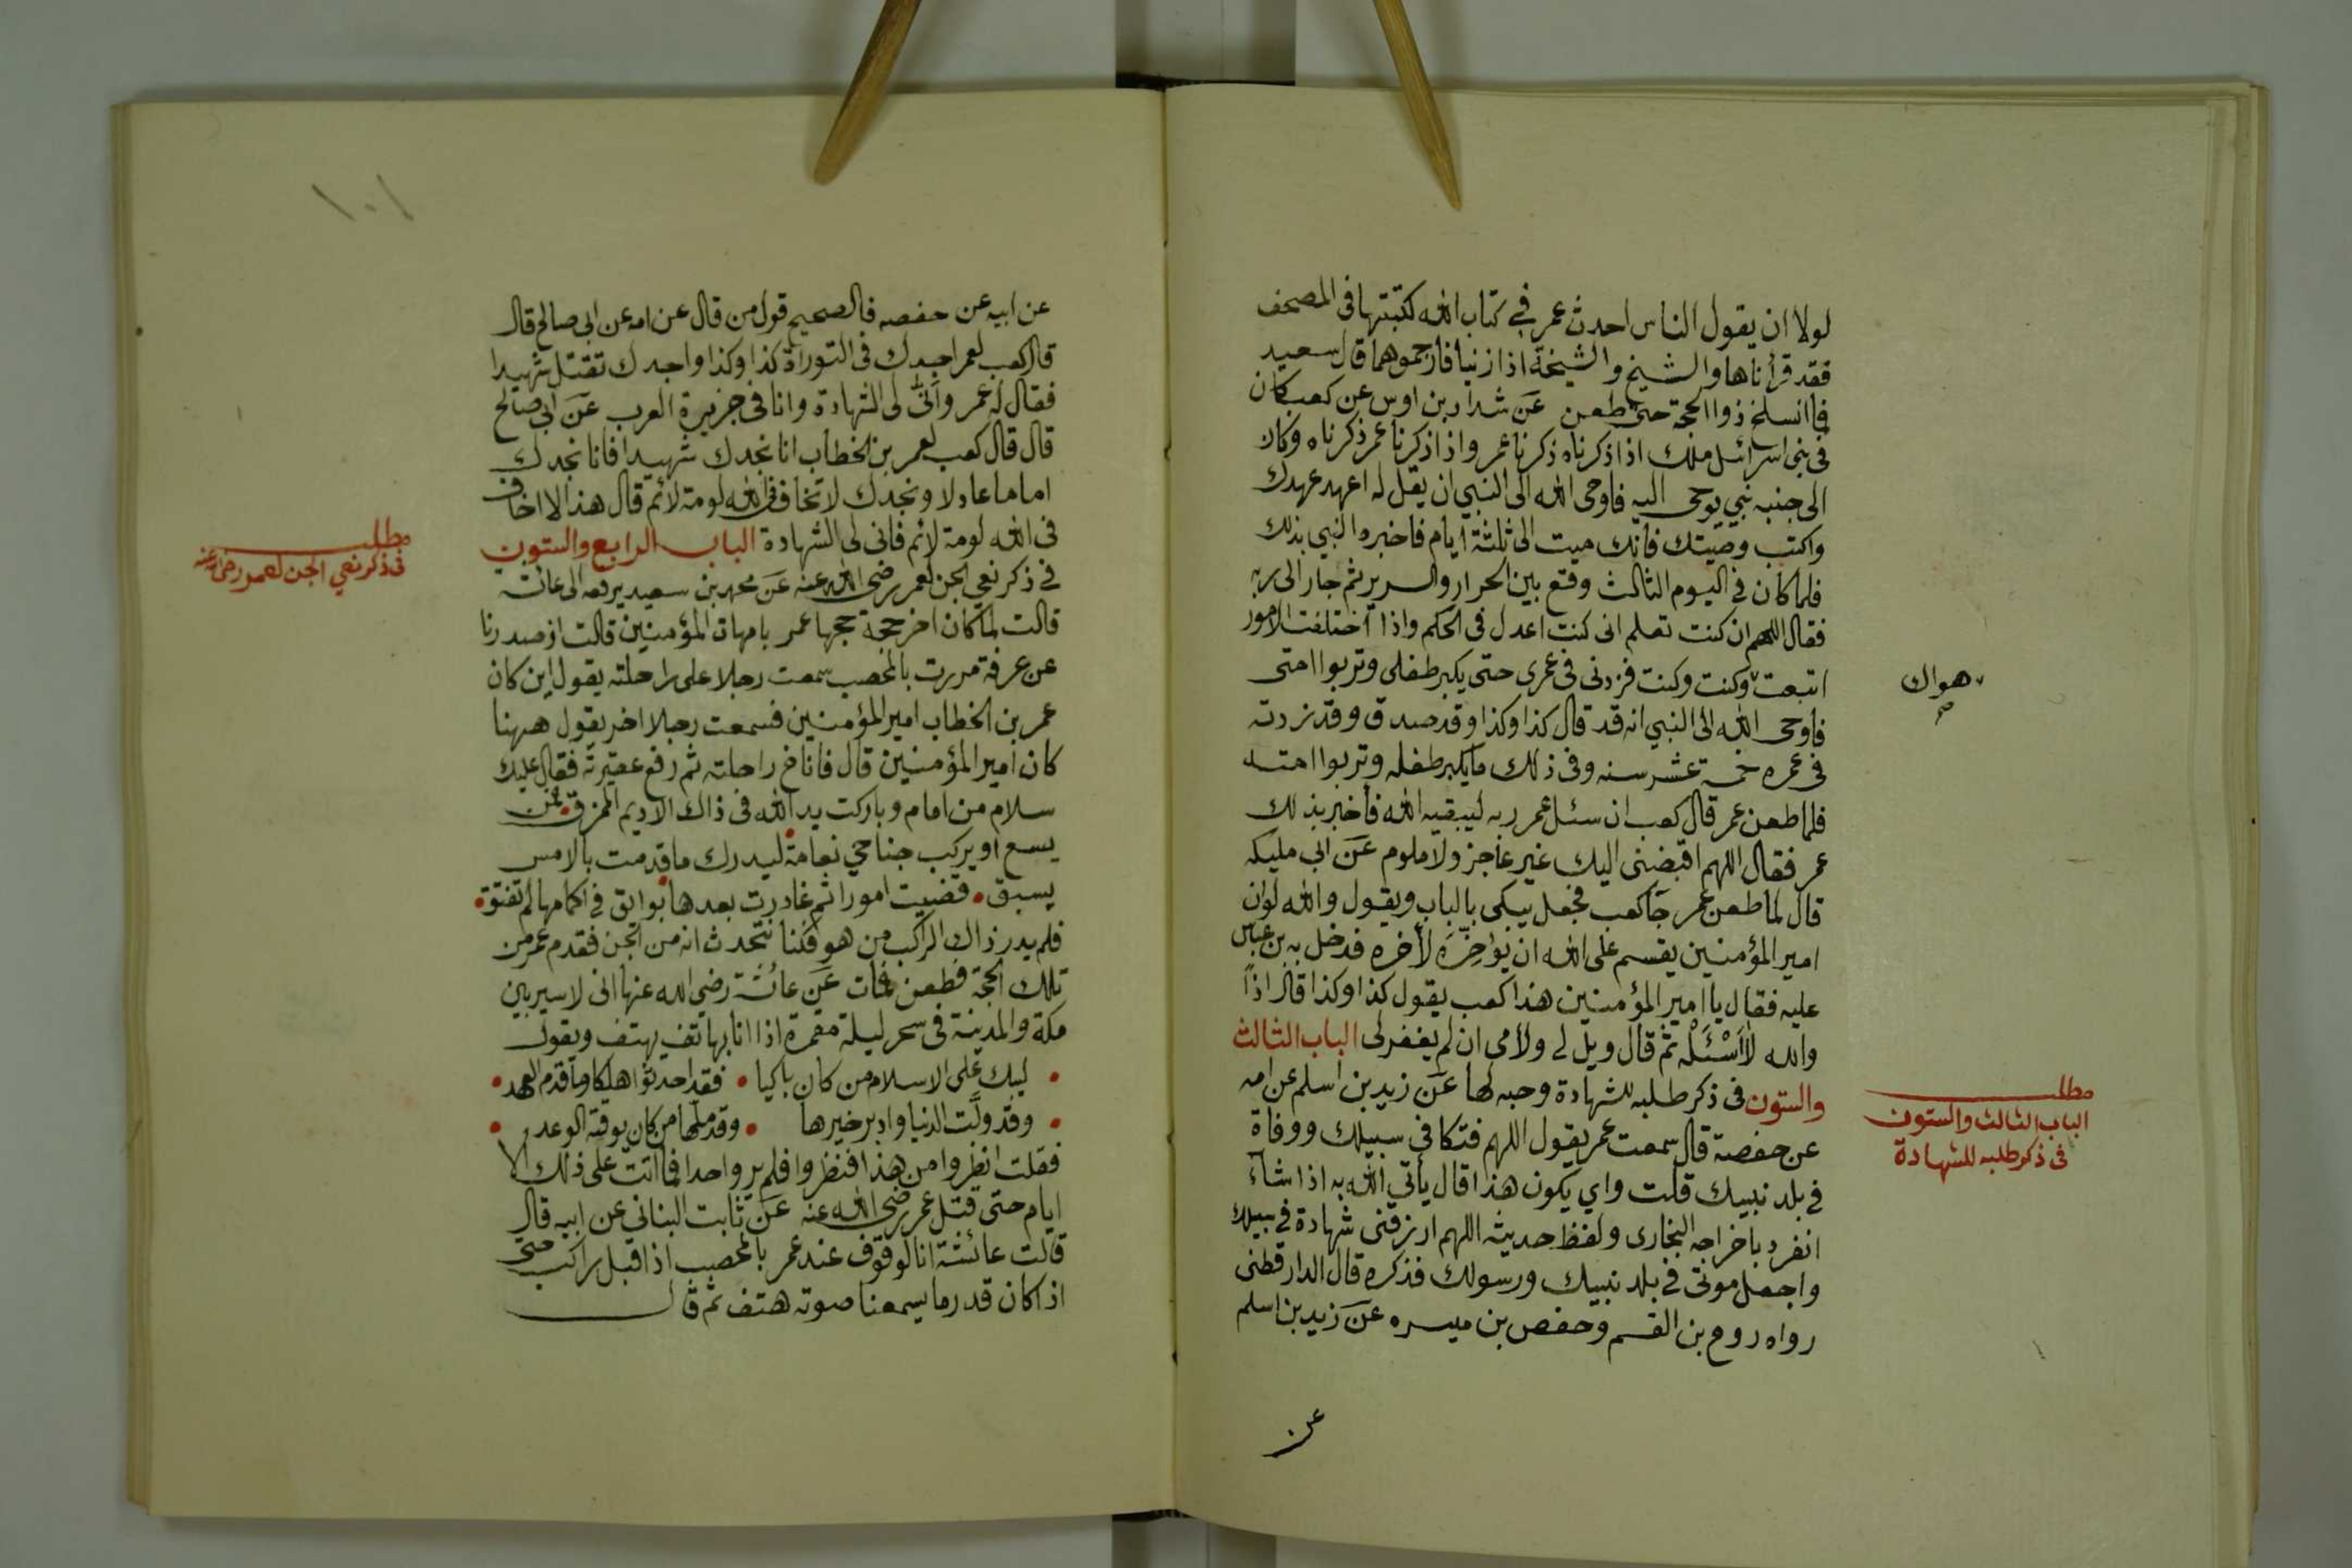 لولا ان يقول الناس احدث عمر في كتاب الله لكتبتها فى المصحف
فقد قرأناها والشيخ والشيخة اذا زنيا فارجموهما قال سعيد
فما انسلخ ذوا الحجة حتى طعن عن شداد بن اوس عن كعب كان
فى بنى اسرائل ملك اذا ذكرناه ذكرنا عمر واذا ذكرنا عمر ذكرناه وكان
الى جنبه نبي يوحى اليه فاوحى الله الى النبي ان يقل له اعهد عهدك
واكتب وصيتك فانك ميت الى ثلثة ايام فاخبره النبي بذلك
فلما كان فى اليوم الثالث وقع بين الجدار والسرير ثم جار الى ربه
فقال اللهم ان كنت تعلم انى كنت اعدل فى الحكم واذا اختلفت الامور
اتبعت وكنت وكنت فزدنى فى عمرى حتى يكبر طفلى وتربوا امتى
هواك
صح
فاوحى الله الى النبي انه قد قال كذا وكذا وقد صدق وقد زدته
فى عمره خمسة عشر سنه وفى ذلك ما يكبر طفله وتربوا امته
فلما طعن عمر قال كعب ان سئل عمر ربه ليبقيه الله فاخبر بذلك
عمر فقال اللهم اقبضنى اليك غير عاجز ولا ملوم عن ابى مليكه
قال لما طعن عمر جآ كعب فجعل يبكى بالباب ويقول والله لو ان
امير المؤمنين يقسم على الله ان يؤخره لاخره فدخل به بن عباس
عليه فقال يا امير المؤمنين هذا كعب يقول كذا وكذا قال اذاً
والله لا أسْئَله ثم قال ويل لى ولأمى ان لم يغفر لى الباب الثالث
والستون فى ذكر طلبه للشهادة وحبه لها عن زيد بن اسلم عن امه
مطلب
الباب الثالث والستون
فى ذكر طلبه للشهادة
عن حفصة قال سمعت عمر يقول اللهم قتلا فى سبيلك ووفاة
في بلد نبيك قلت واي يكون هذا قال يأتي الله به اذا شاء
انفرد باخراجه البخارى ولفظ حديثه اللهم ارزقنى شهادة فى سبيلك
واجعل موتى في بلد نبيك ورسولك فذكره قال الدارقطنى
رواه روح بن القسم وحفص بن ميسره عن زيد بن اسلم
عن
١٠١
عن ابيه عن حفصه فالصحيح قول من قال عن امه عن ابى صالح قال
قال كعب لعمر اجدك فى التوراة كذا وكذا واجدك تقتل شهيدا
فقال له عمر وأنّى لى الشهادة وانا فى جزيرة العرب عن ابى صالح
قال قال كعب لعمر بن الخطاب انا نجدك شهيدا فانا نجدك
اماما عادلا ونجدك لا تخاف فى الله لومة لائم قال هذا لا اخاف
فى الله لومة لائم فانى لى الشهادة الباب الرابع والستون
مطلب
فى ذكر نعي الجن لعمر رضى الله عنه
فى ذكر نعي الجن لعمر رضى الله عنه عن محمد بن سعيد يرفعه الى عائشة
قالت لما كان اخر حجة حجها عمر بامهات المؤمنين قالت اذ صدرنا
عن عرفة مررت بالمحصب سمعت رجلا على راحلته يقول اين كان
عمر بن الخطاب امير المؤمنين فسمعت رجلا اخر يقول ههنا
كان امير المؤمنين قال فاناخ راحلته ثم رفع عقيرته فقال عليك
سلام من امام وباركت يد الله فى ذاك الاديم الممزق فمن
يسع او يركب جناحي نعامة ليدرك ما قدمت بالامس
يسبق قضيت امورا ثم غادرت بعدها بوائق فى اكمامها لم تفتق
فلم يدر ذاك الراكب من هو فكنا نتحدث انه من الجن فقدم عمر من
تلك الحجة فطعن فمات عن عائشة رضي الله عنها انى لاسير بين
مكة والمدينة فى سحر ليلة مقمرة اذا انا بهاتف يهتف ويقول
ليبك على الاسلام من كان باكيا فقد احدثوا هلكا وما قدم العهد
وقد ولّت الدنيا وادبر خيرها وقد ملها من كان يوقن الوعد
فقلت انظروا من هذا فنظروا فلم ير واحدا فما اتت على ذلك الا
ايام حتى قتل عمر رضى الله عنه عن ثابت البنانى عن ابيه قال
قالت عائشة انا لوقوف عند عمر بالمحصب اذ اقبل راكب حتى
اذا كان قدر ما يسمعنا صوته هتف ثم قال